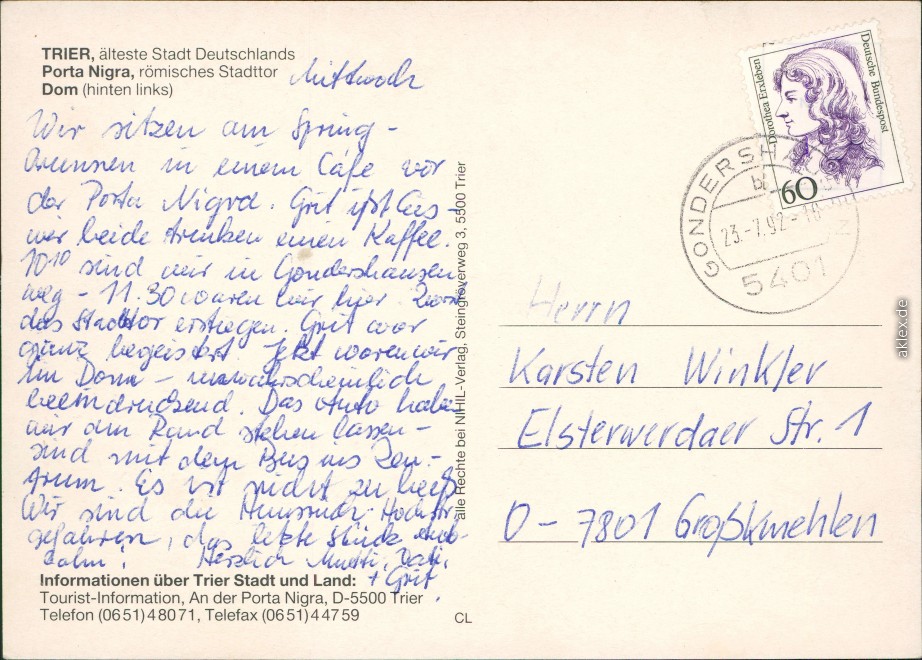 TRIER, älteste Stadt Deutschlands
Porta Nigra, römisches Stadttor
Dom (hinten links)
Mittwoch
Wir sitzen am Spring-
brunnen in einem Cafe vor
der Porta Nigra. Grit ißt Eis –
wir beide trinken einen Kaffee.
10¹⁰ sind wir in Gondershausen
weg – 11.30 waren wir hier.
das Stadttor erstiegen. Grit war
ganz begeistert. Jetzt waren wir
im Dom – unwahrscheinlich
beeindruckend. Das Auto haben
wir am Rand stehen lassen –
sind mit dem Bus ins Zen-
trum. Es ist nicht zu heiß
Wir sind die Hunsrück-Höhenstr.
gefahren, das letzte Stück Auto-
bahn! Herzlich Mutti, Vati,
+ Grit.
Informationen über Trier Stadt und Land:
Tourist-Information, An der Porta Nigra, D-5500 Trier
Telefon (0651) 48071, Telefax (0651) 44759
CL
alle Rechte bei NIHIL-Verlag, Steingröverweg 3, 5500 Trier
Dorothea Erxleben
Deutsche Bundespost
60
GONDERSH
23.-7.92-16
5401
Herrn
Karsten Winkler
Elsterwerdaer Str. 1
O-7801 Großkmehlen
aklex.de